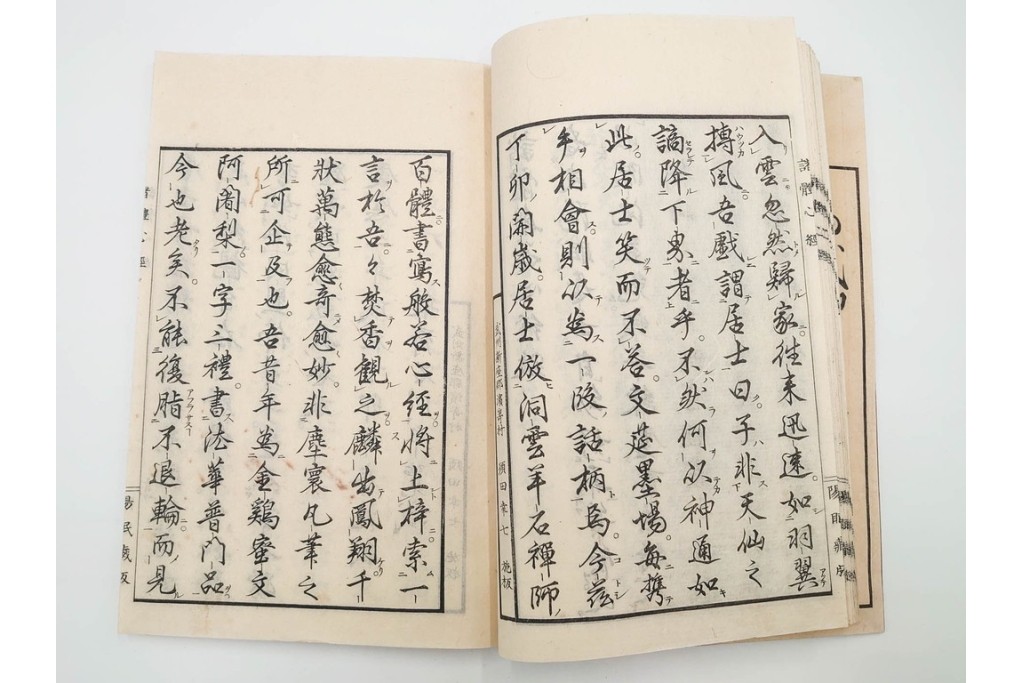 入雲忽然歸家往来迅速。如羽翼
搏風吾戲謂居士曰子非天仙之
謫降下界者乎。不然何以神通如
此居士笑而不答文莚墨場每携
手相會則以為一段話柄焉今茲
丁卯開歲居士倣洞雲羊石禪師
百體書寫般若心經將上梓索一
言於吾々焚香觀之麟出鳳翔千
狀萬態愈奇愈妙。非塵寰凡筆之
所可企及也。吾昔年為金鷄蜜文
阿闍梨一字三禮書法華普門品
今也老矣。不能復脂不退輪而見